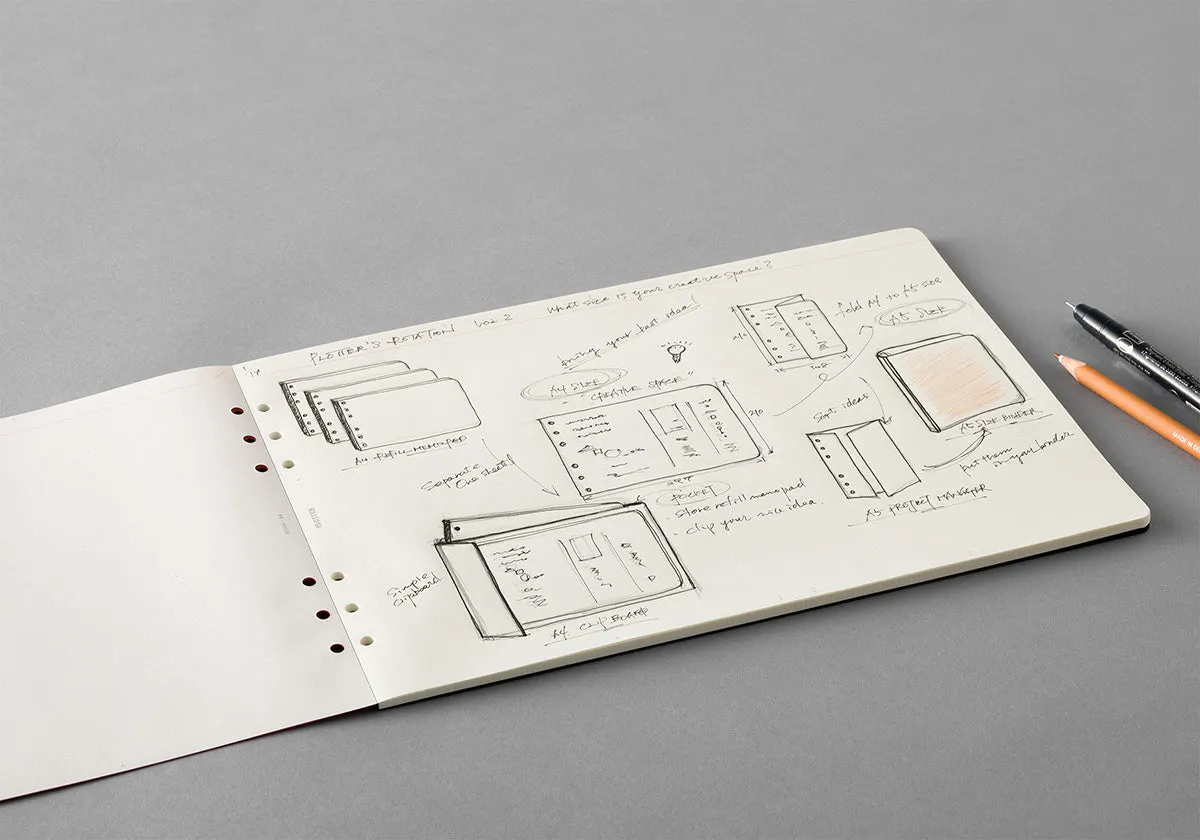 PLOTTER'S ROTATION Vol. 2 What size is your creative space?
bring your best idea!
fold A4 to A5 size
A5 SIZE
A4 SIZE
"CREATIVE SPACE"
210
297
210
A4 REFILL MEMOPAD
Separate
One sheet!
Sort ideas
A5 SIZE BINDER
put them
in your binder
A5 PROJECT MANAGER
POCKET
· Store refill memopad
· clip your nice idea.
Simple
clipboard
A4 CLIPBOARD
PLOTTER
MADE IN G